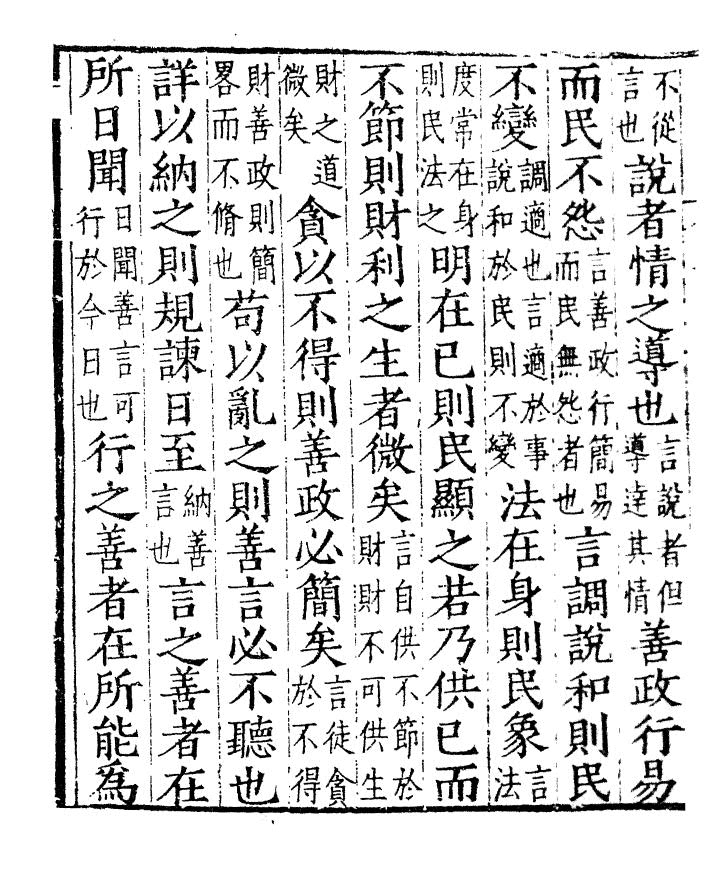 不從言也說者情之導也言說者但導達其情善政行易
而民不怨言善政行簡易而民無怨者也言調說和則民
不變調適也言適於事說和於民則不變法在身則民象言法
度常在身則民法之明在己則民顯之若乃供己而
不節則財利之生者微矣言自供不節於財財不可供生
財之道微矣貪以不得則善政必簡矣言徒貪於不得
財善政則簡畧而不脩也苟以亂之則善言必不聽也
詳以納之則規諫日至納善言也言之善者在
所日聞日聞善言可行於今日也行之善者在所能爲